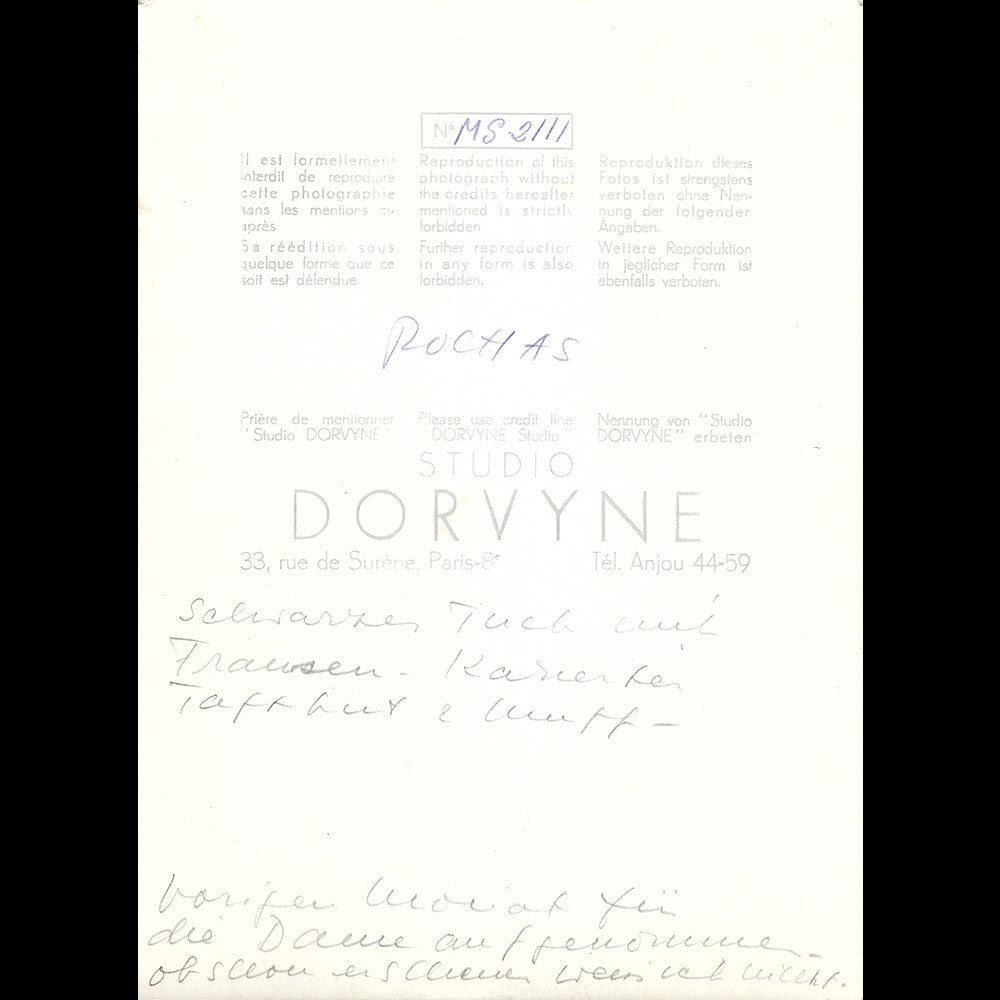 N° MS 2111
Il est formellement
interdit de reproduire
cette photographie
sans les mentions ci-
après.
Sa réédition sous
quelque forme que ce
soit est défendue.
Reproduction of this
photograph without
the credits hereafter
mentioned is strictly
forbidden.
Further reproduction
in any form is also
forbidden.
Reproduktion dieses
Fotos ist strengstens
verboten ohne Nen-
nung der folgender
Angaben.
Weitere Reproduktion
in jeglicher Form ist
ebenfalls verboten.
ROCHAS
Prière de mentionner
"Studio DORVYNE"
Please use credit line
"DORVYNE Studio"
Nennung von "Studio
DORVYNE" erbeten
STUDIO
DORVYNE
33, rue de Surène, Paris-8e
Tél. Anjou 44-59
Schwarzes Tuch mit
Fransen - Karierter
Tafthut & Muff -
Vorigen Monat für
die Dame aufgenommen
ob schon erschienen weis ich nicht.